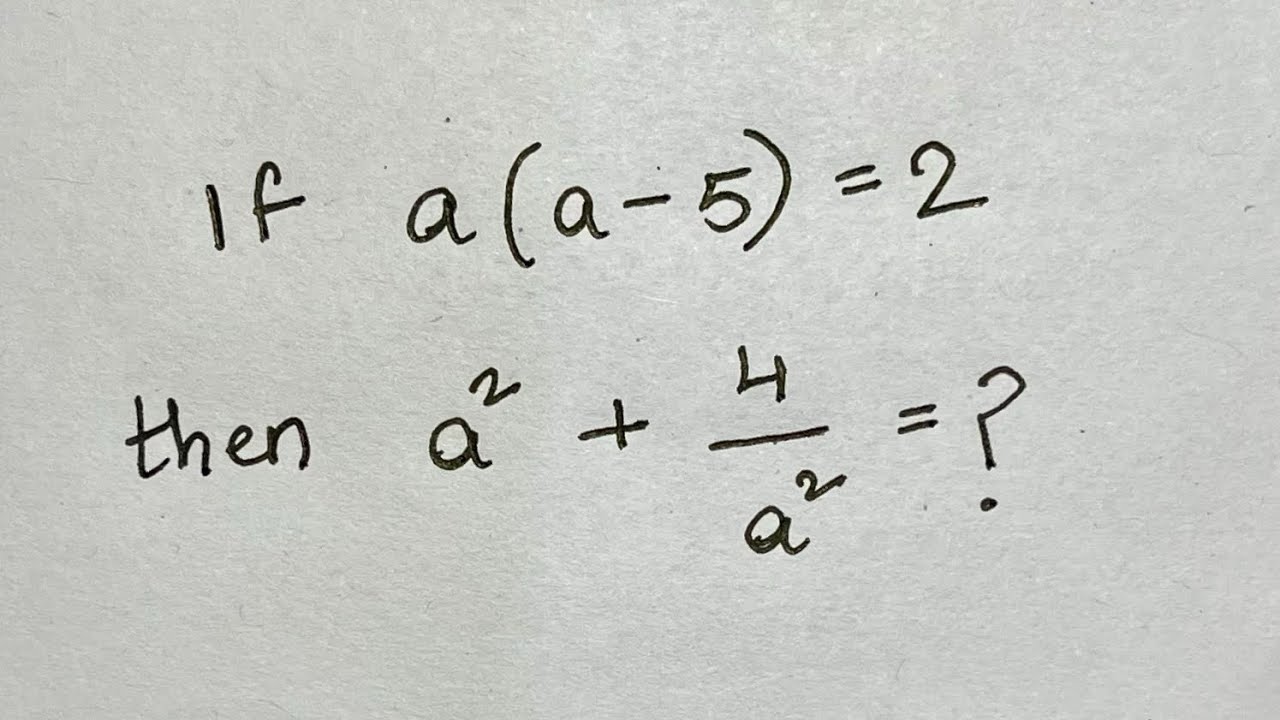 If a(a-5)=2
then a² + 4/a² = ?